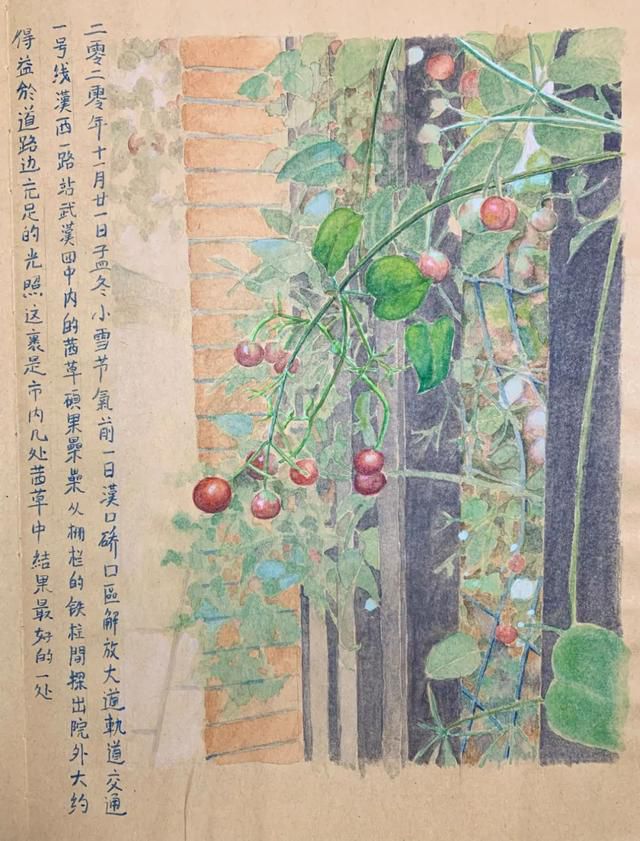 二零二零年十一月廿一日孟冬小雪节氣前一日漢口硚口區解放大道軌道交通
一号线漢西一路站武漢四中内的茜草碩果纍纍从栅栏的铁柱間探出院外大约
得益於道路边充足的光照这裏是市内几处茜草中结果最好的一处